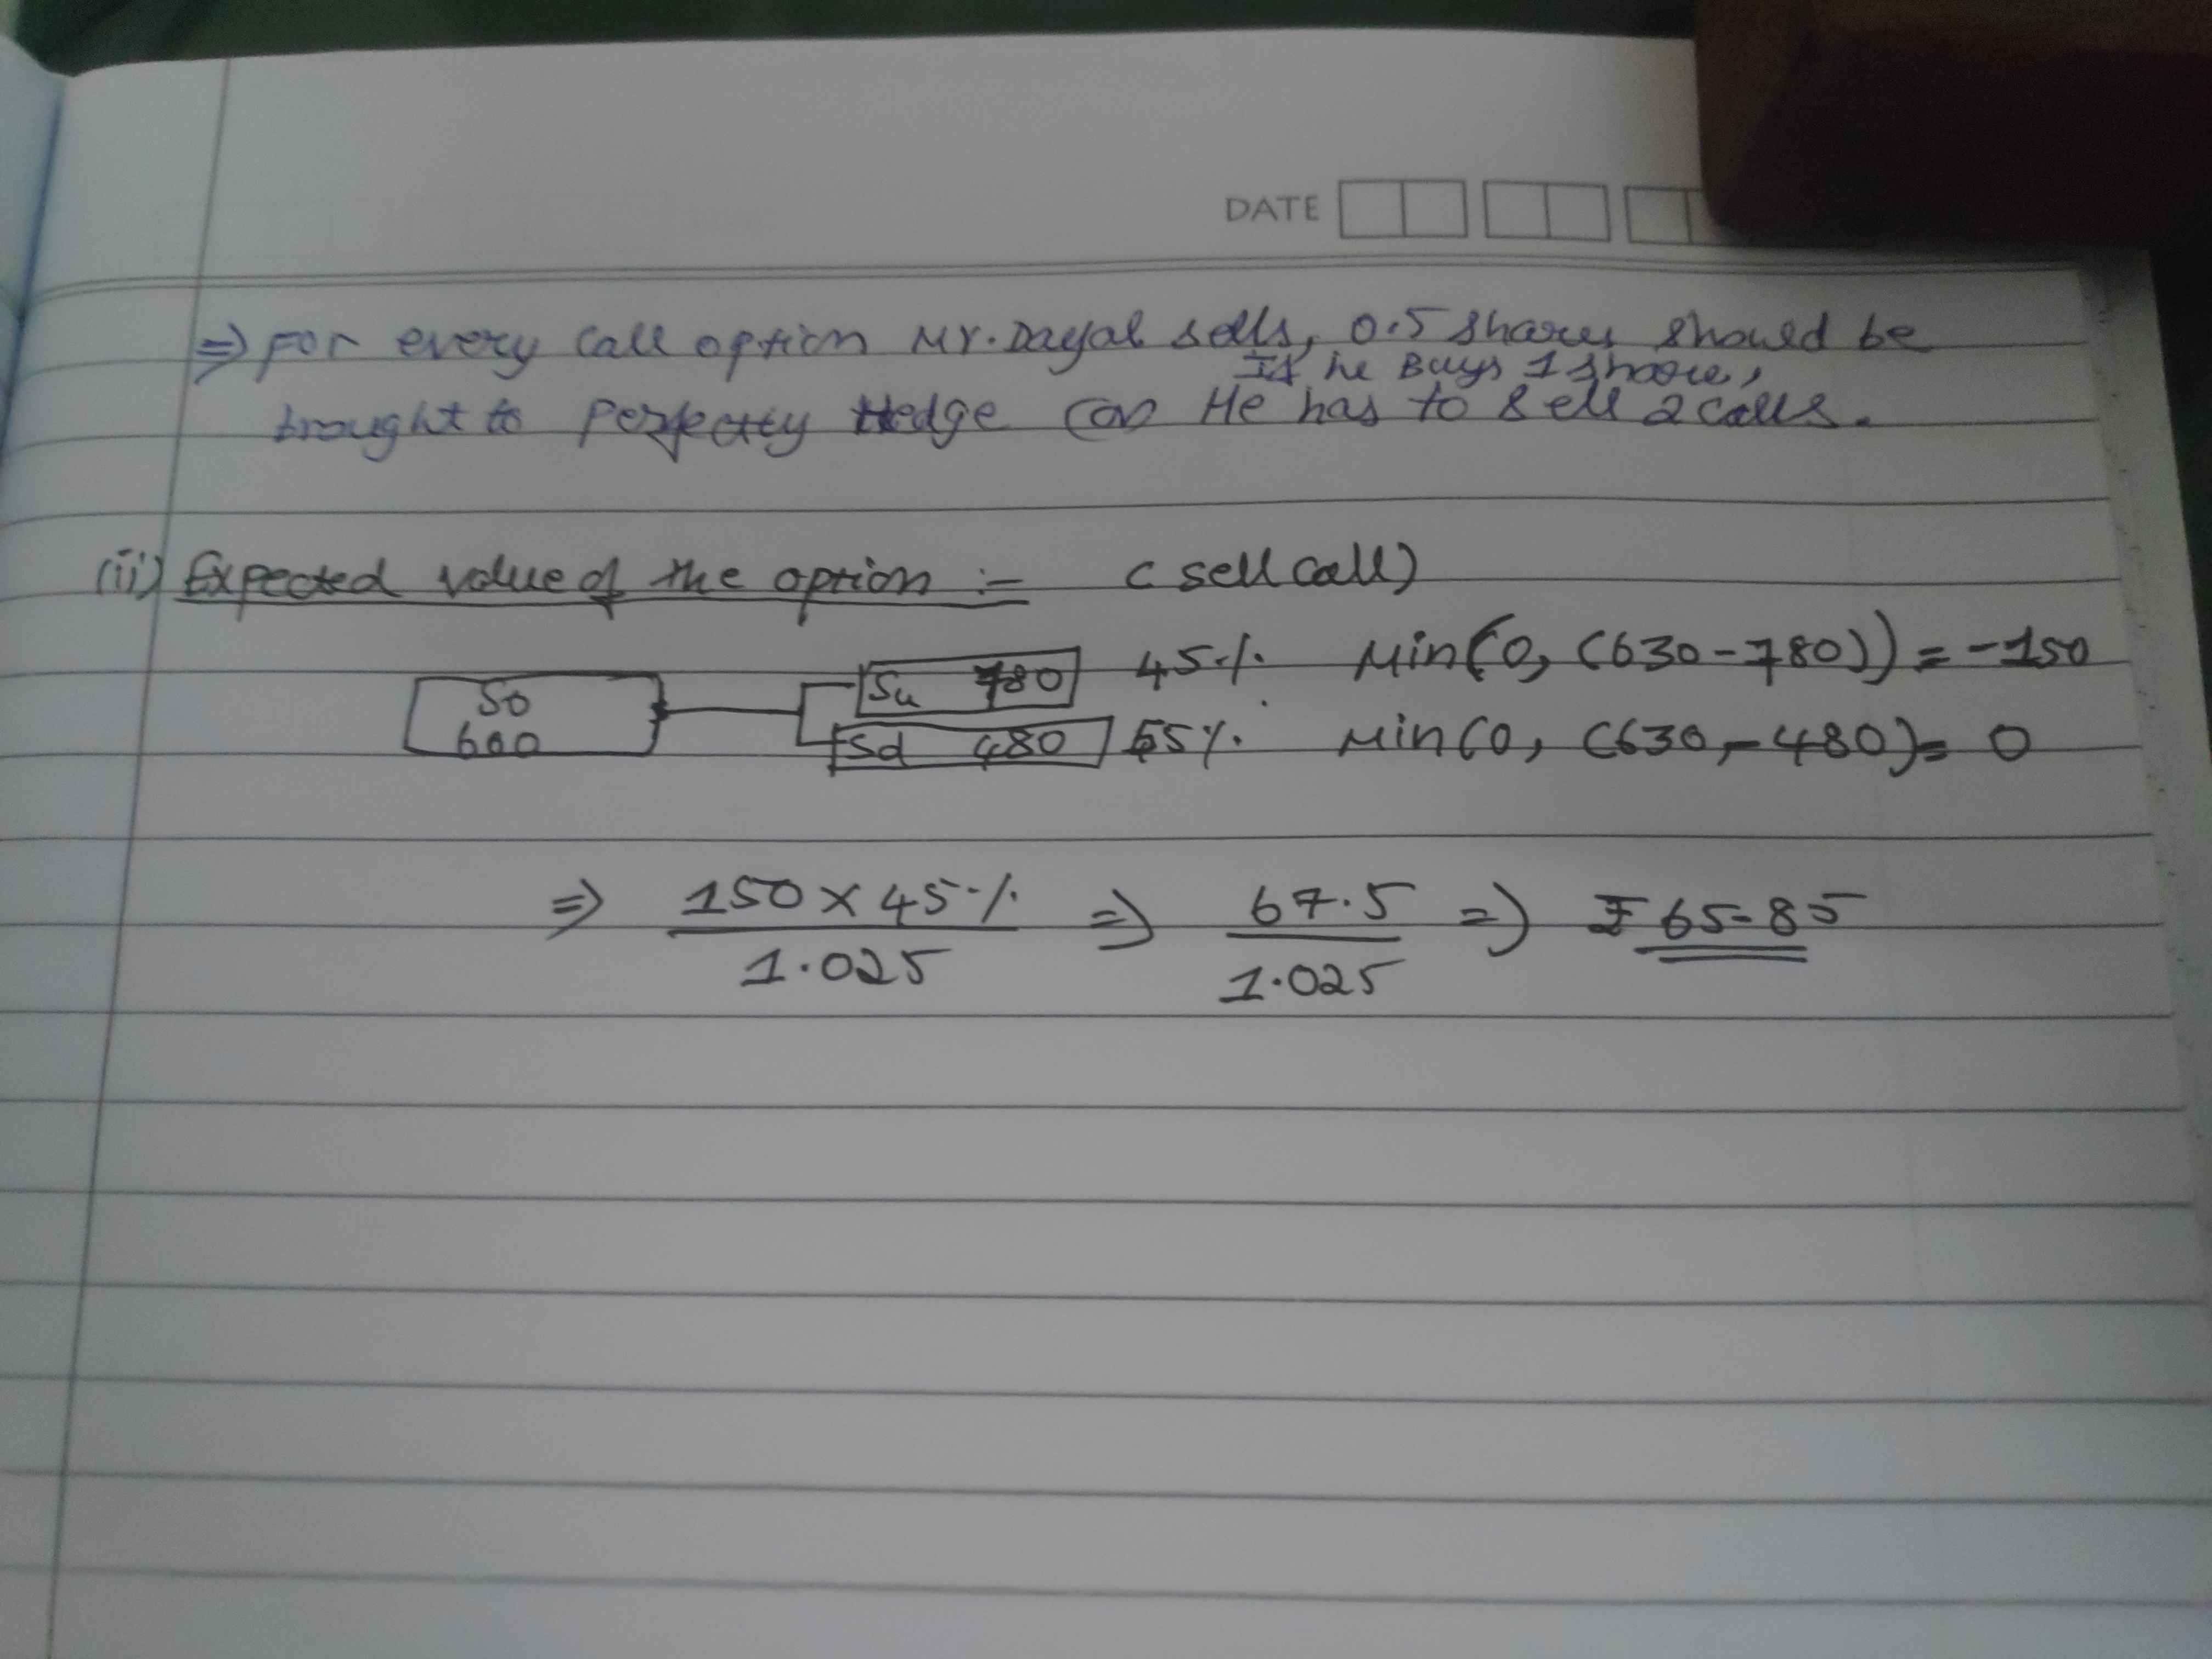 DATE
⇒ For every call option Mr. Dayal sells, 0.5 shares should be
If he Buys 1 share,
brought to perfectly Hedge (or) He has to sell 2 calls.
(ii) Expected value of the option :- (sell call)
Su 780 45% Min(0, (630-780)) = -150
So
600
Sd 480 55% Min(0, (630-480) = 0
⇒ 150 × 45% / 1.025 ⇒ 67.5 / 1.025 ⇒ ₹ 65.85